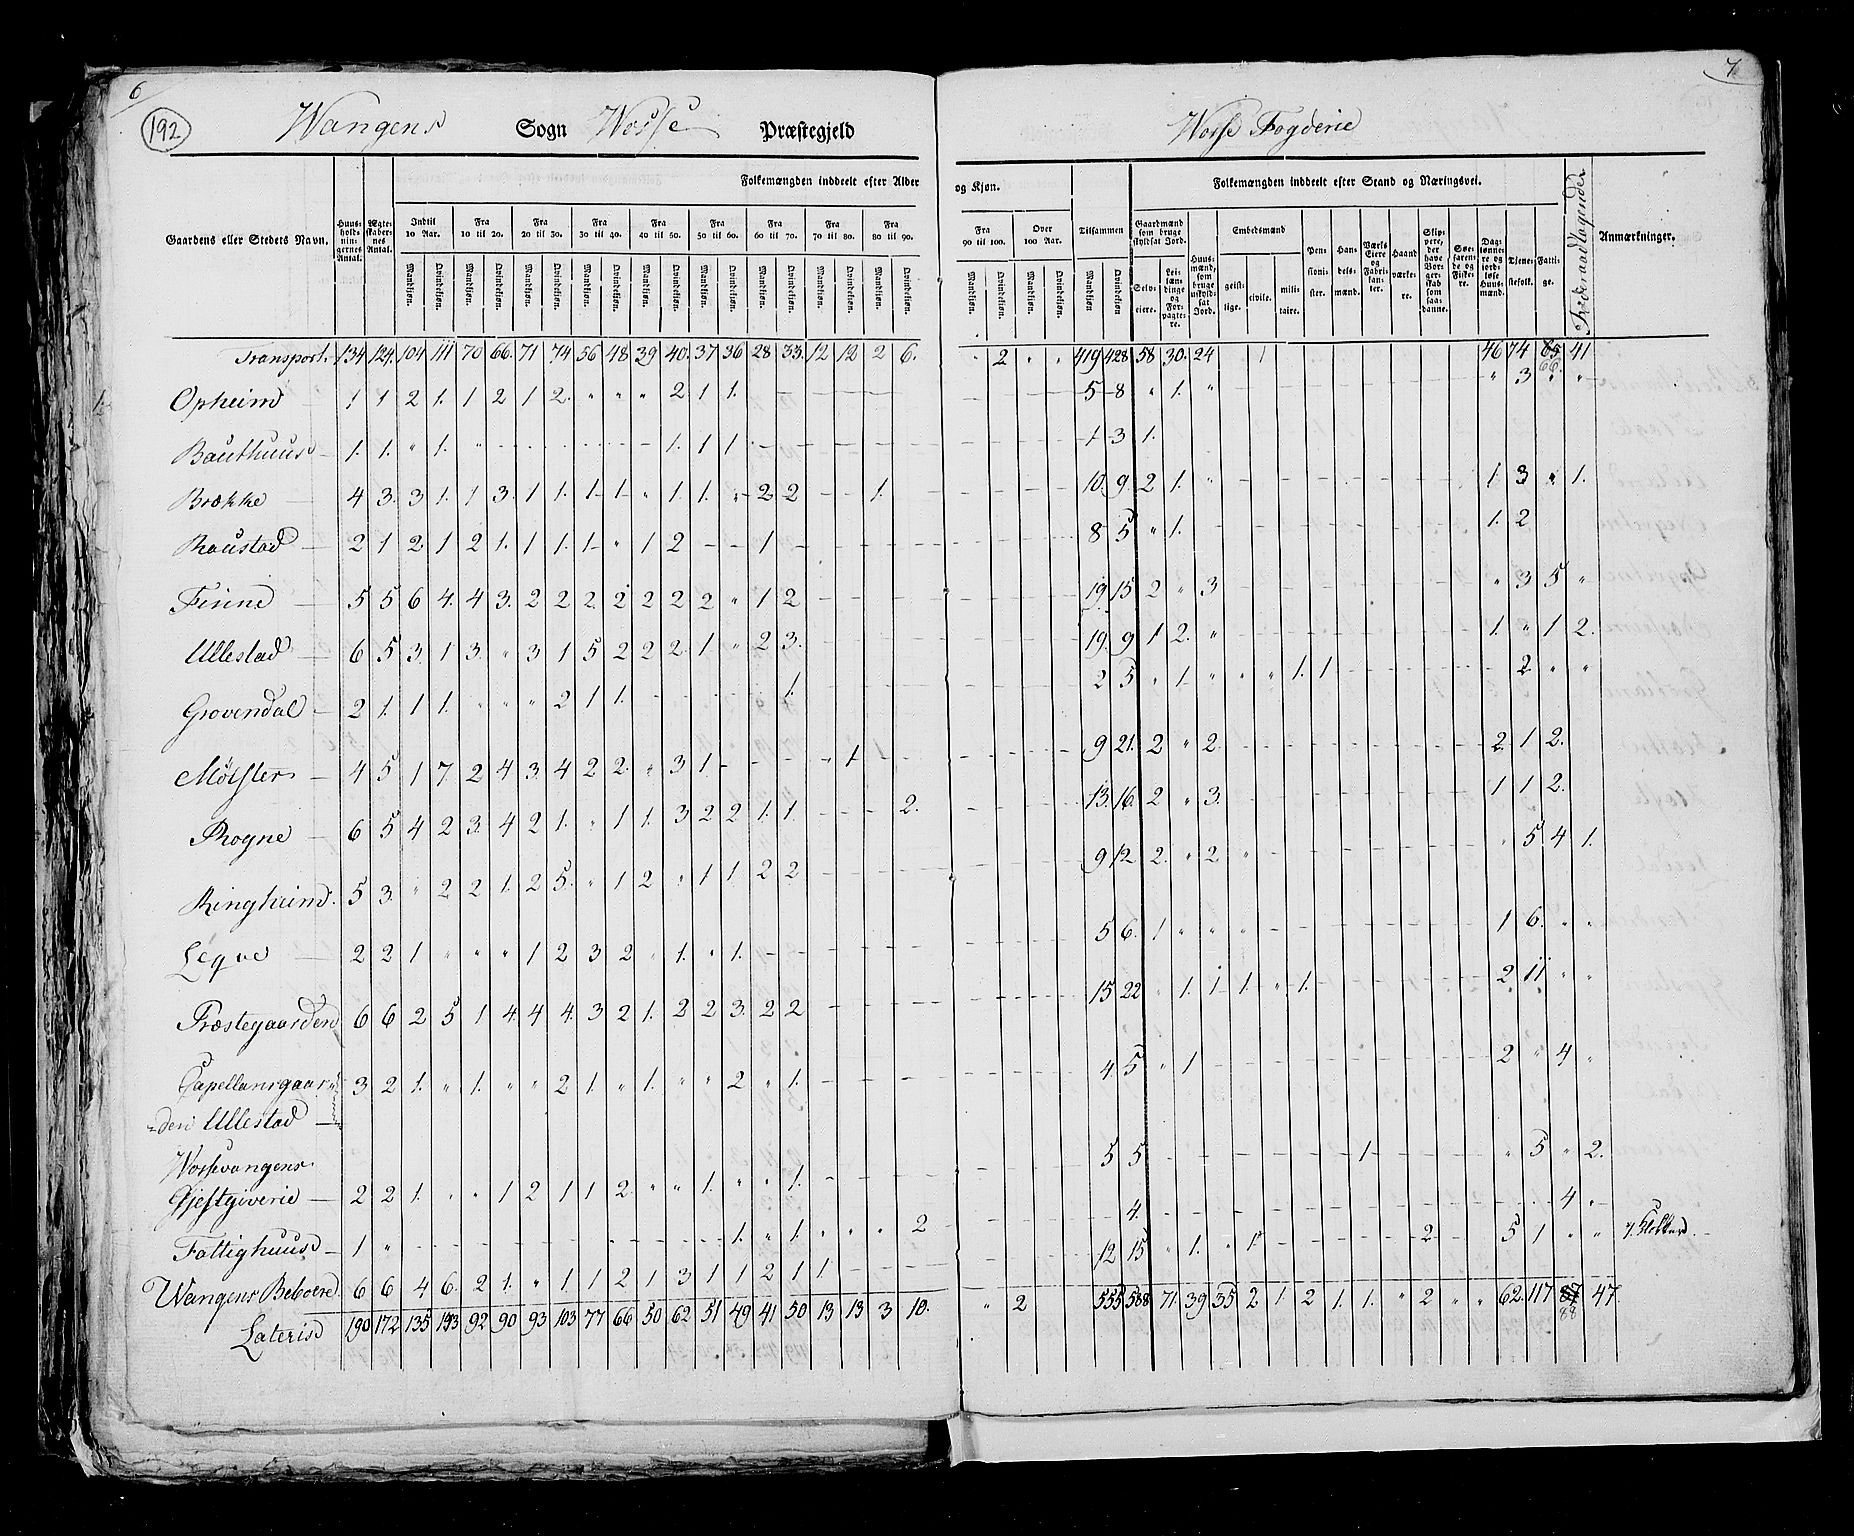 6
7
192
Wangens Sogn Wosse Præstegjeld
Wosse Fogderie
Folkemængden inddeelt efter Alder og Kjøn.
Folkemængden inddeelt efter Stand og Næringsvei.
Gaardens eller Stedets Navn.
Huus-holdnin-gernes Antal.
Ægte-skaber-nes Antal.
Indtil 10 Aar.
Fra 10 til 20.
Fra 20 til 30.
Fra 30 til 40.
Fra 40 til 50.
Fra 50 til 60.
Fra 60 til 70.
Fra 70 til 80.
Fra 80 til 90.
Fra 90 til 100.
Over 100 Aar.
Tilsammen
Mandkjøn. Qvindekjøn.
Gaardmænd som bruge skyldsat Jord.
Selv-eiere.
Lei-læn-dinge og For-pagte-re.
Huus-mænd, som bruge uskyld-sat Jord.
Embedsmænd
geist-lige.
civile.
mili-taire.
Pen-sioni-ster.
Han-dels-mænd.
Værks Eiere og Fabri-kan-ter.
Haand værke-re.
Skip-pere, der have Bor-ger-skab som saa-danne.
Søe-faren-de og Fiske-re.
Dag-lønne-re og jord-løse Huus-mænd.
Tjene-stefolk.
Fatti-ge.
Føderaadtagende
Anmærkninger.
Transport. 134 124 104 111 70 66 71 74 56 48 39 40 37 36 28 33 12 12 2 6. " 2 " " 419 428 58 30 24 1 46 74 65 66 41
Opheim 1 1 2 1 1 2 1 2 " " " 2 1 1 5 8 " 1 " " 3 " "
Bauthuus 1 1 " 1 " 1 1 1 1 3 1
Brække 4 3 3 1 1 3 1 1 1 1 " 1 1 " 2 2 1 10 9 2 1 " 1 3 " 1
Raustad 2 1 2 1 2 1 1 1 1 " 1 2 1 8 5 " 1 1 2
Finne 5 5 6 4 4 3 2 2 2 2 2 2 2 " 1 2 19 15 2 " 3 " 3 5 "
Ullestad 6 5 3 1 3 " 3 1 5 2 2 2 1 " 2 3 19 9 1 2 " 1 " 1 2
Grovendal 2 1 1 1 " " " 2 1 1 1 2 5 " 1 " " " 1 1 2 " "
Mølster 4 5 1 7 2 4 3 4 2 2 " 3 1 " 1 1 9 21 2 " 2 2 1 2
Rogne 6 5 4 2 3 4 2 1 " 1 1 3 2 2 1 1 2 13 16 2 " 3 1 1 2
Ringheim 5 3 " 2 2 1 2 5 " 1 2 " 1 1 2 2 9 12 2 " 2 " " 5 4 1
Leqve 2 2 1 " " " 1 2 3 2 " 1 " 1 5 6 1 " " " 1 6 " "
Præstegaarden 6 6 2 5 1 4 4 4 3 2 1 2 2 3 2 2 15 22 " 1 1 1 " 1 2 11 " "
Capellansgaar
den Ullestad 3 2 1 " 1 " " 2 1 " 1 " " 2 " 1 4 5 " 1 2 " 4 "
Wossevangens
Gjestgiverie 2 2 1 " " 1 2 1 1 2 " " 1 " " 1 5 5 1 " 5 " 2
Fattighuus 1 " 1 " 1 " " " 2 4 4 "
Wangens Beboere 6 6 4 6 2 1 " 1 1 2 1 3 1 1 2 1 1 12 15 " 1 " 1 2 5 1 " "
Lateris 190 172 135 153 92 90 93 103 77 66 50 62 51 49 41 50 13 13 3 10. " 2 555 588 71 39 35 2 1 2 1 1 " 2 " " 62 117 87 88 47